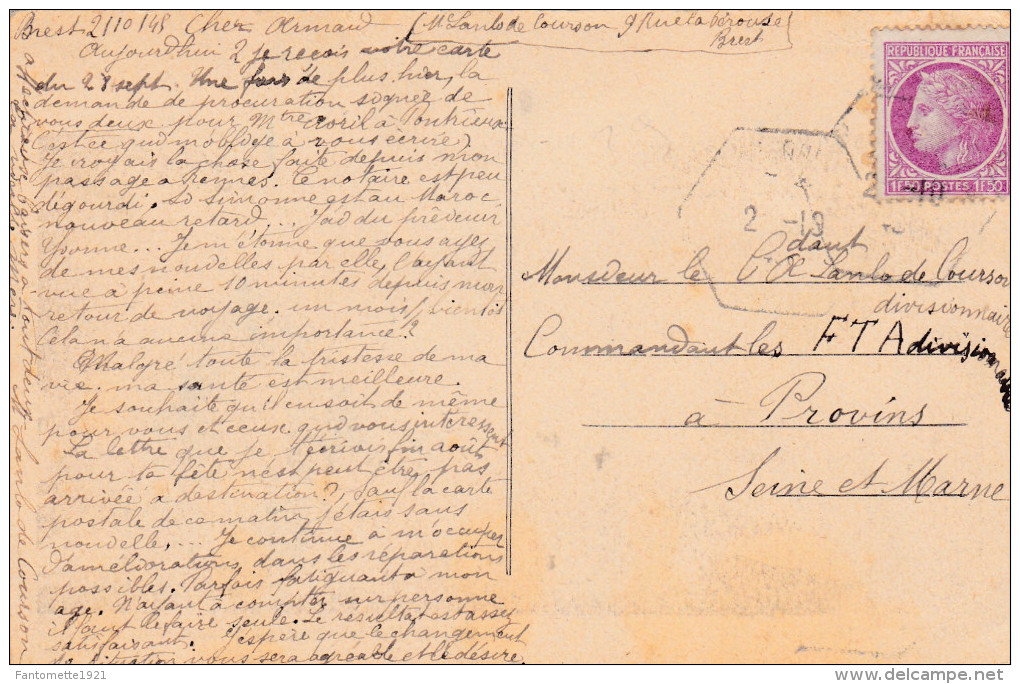 Brest 2/10/45 Cher Armand (Mr Lanlo de Courson 9 Rue la Pérouse
Brest
Aujourdhui 2 je reçois votre carte
du 28 sept. Une fois de plus hier, la
demande de procuration signée de
vous deux pour Mtre Avril à Pontrieux
C'est ce qui m'oblige à vous écrire
Je croyais la chose faite depuis mon
passage à Rennes. Le notaire est peu
dégourdi. Simonne est au Maroc
nouveau retard... J'ai du prévenir
Yvonne... Je m'étonne que vous ayez
de mes nouvelles par elle, l'ayant
vue à peine 10 minutes depuis mon
retour de voyage. un mois
Cela n'a aucune importance?
Malgré toute la tristesse de ma
vie. ma santé est meilleure.
Je souhaite qu'il en soit de même
pour vous et ceux qui vous intéressent
La lettre que je t'écrivis fin août
pour ta fête n'est peut être pas
arrivée a destination?, sauf la carte
postale de ce matin, j'étais sans
nouvelle, ... Je continue à m'occuper
d'améliorations, dans les réparations
possibles. Parfois fatiguant à mon
age. N'ayant à compter sur personne
il faut le faire seule. Le résultat est assez
satisfaisant. J'espère que le changement
de situation vous sera agréable et le désire.
affectueux baisers à tous deux
M Lanlo de Courson
REPUBLIQUE FRANÇAISE
1F50 POSTES 1F50
2 -19
Monsieur le Cdant de Lanlo de Courson
divisionnaire
Commandant les FTA divisionnaire
à Provins
Seine et Marne
Fantomette1921
www.delcampe.net